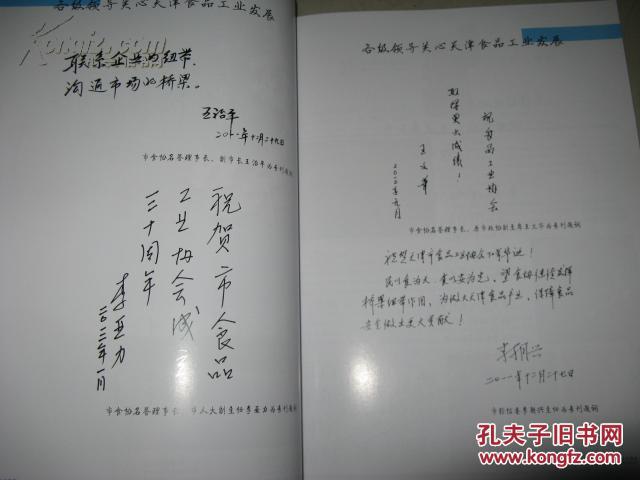 各级领导关心天津食品工业发展
联系企业的纽带,
沟通市场的桥梁。
王治平
二〇一一年十二月二十九日
市食协名誉理事长、副市长王治平为专刊题词
祝贺市食品
工业协会成
三十周年
李亚力
二〇一二年一月
市食协名誉理事长、市人大副主任李亚力为专刊题词
各级领导关心天津食品工业发展
祝食品工业协会
取得更大成绩!
王文华
二〇一二年元月
市食协名誉理事长、原市政协副主席王文华为专刊题词
祝贺天津市食品工业协会三十年华诞!
民以食为天、食以安为先,望食协继续发挥
桥梁纽带作用,为做大天津食品产业,保障食品
安全做出更大贡献!
李朝兴
二〇一一年十二月二十七日
市经信委李朝兴主任为专刊题词
孔夫子旧书网
www.kongfz.com